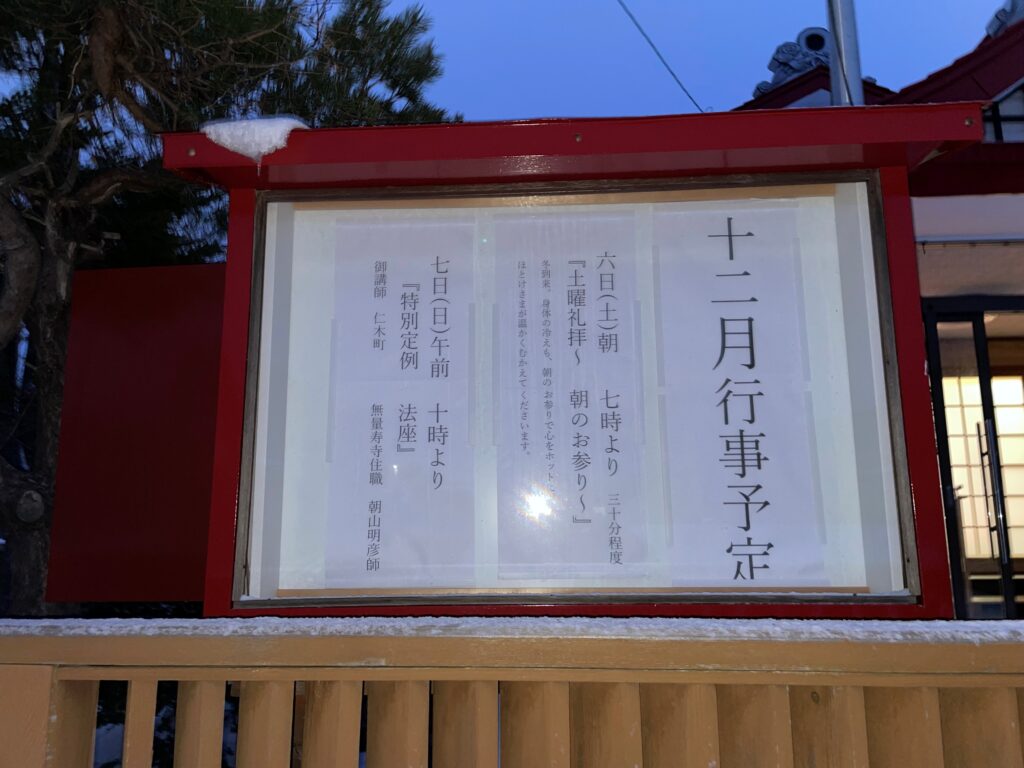 十二月行事予定
六日(土)朝 七時より 三十分程度
『土曜礼拝~ 朝のお参り~』
冬到来、身体の冷えも、朝のお参りで心をホット
ほとけさまが温かくむかえてくださいます。
七日(日)午前 十時より
『特別定例 法座』
御講師 仁木町 無量寿寺住職 朝山明彦師